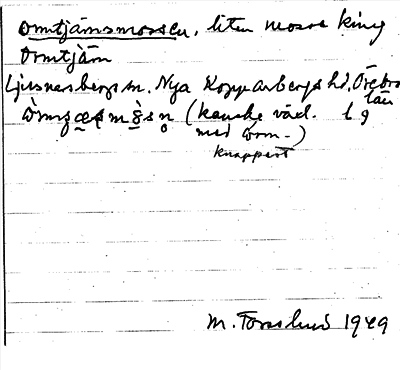 Ormtjärnsmossen, liten mosse kring
Ormtjärn
Ljusnarsbergs sn. Nya Kopparbergs hd, Örebro
län
(kanske växl. l 9
med orm-)
knappast
M. Forslund 1949